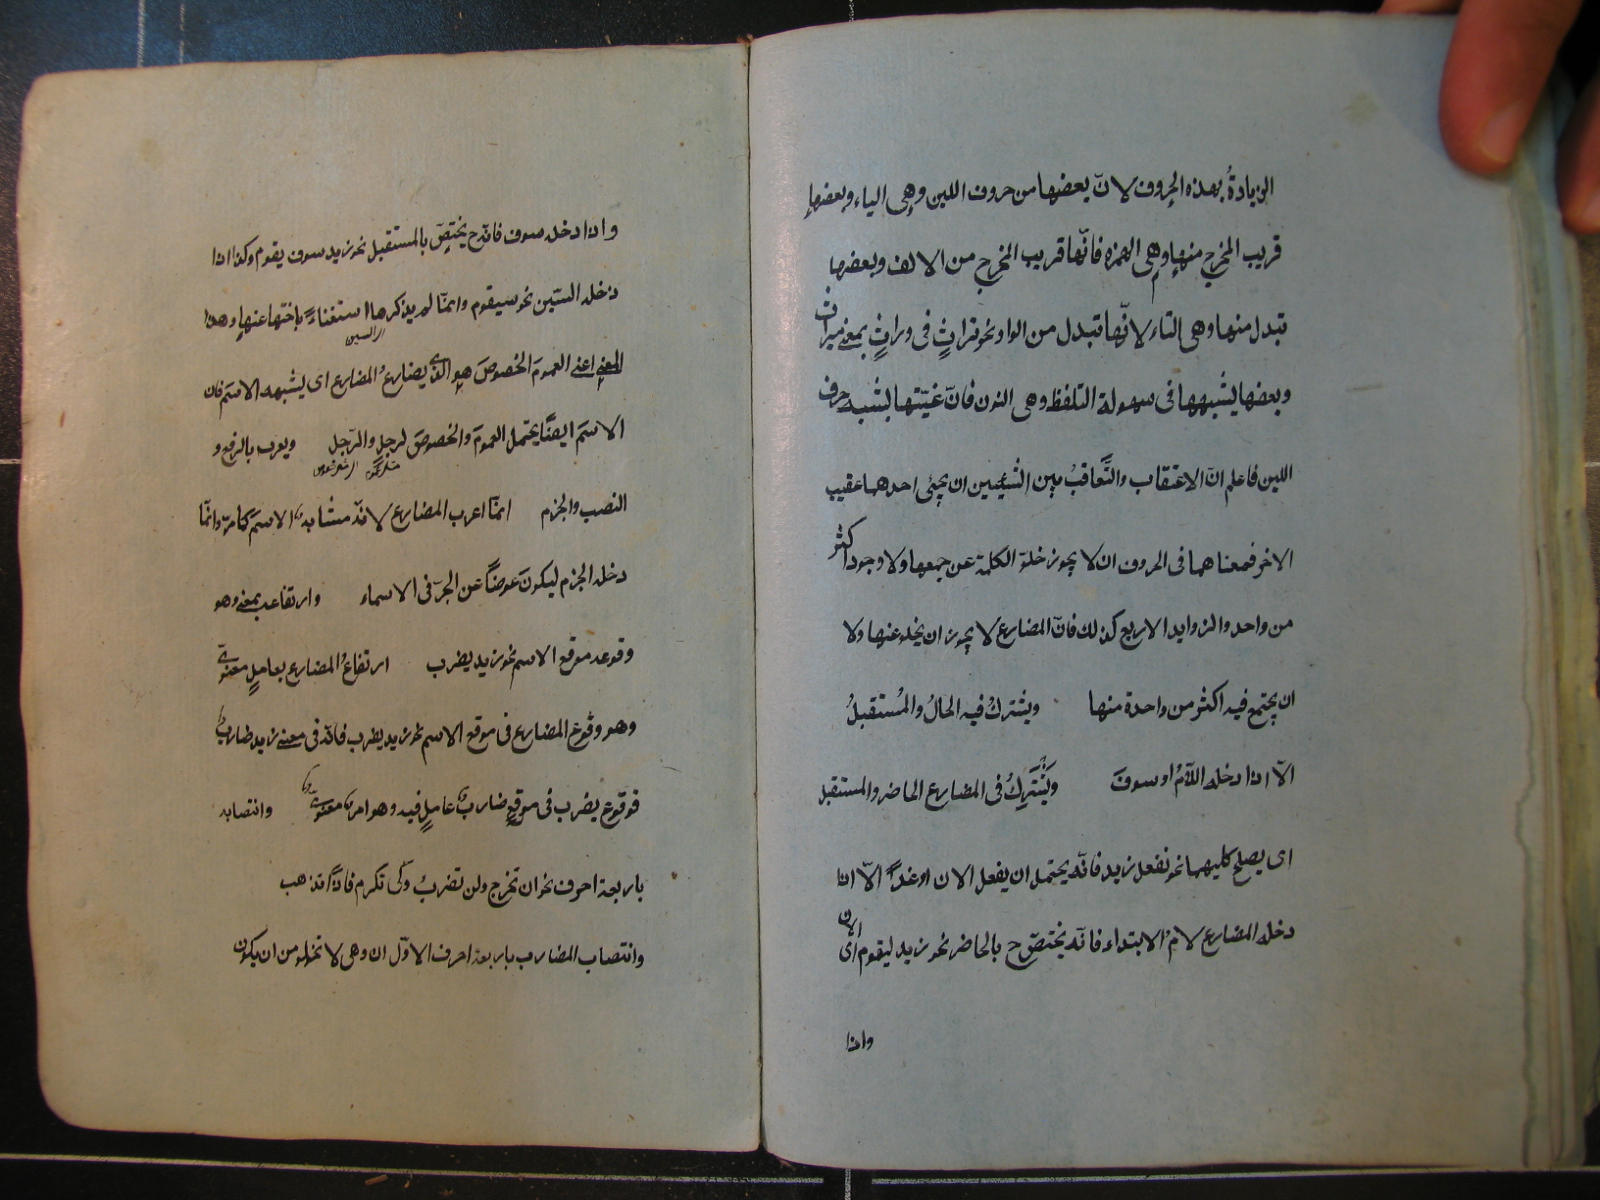 الزيادةُ بهذه الحروف لانّ بعضها من حروف اللين وهى الياء وبعضها
قريب المخرج منها وهى الهمزه فانّها قريب المخرج من الالف وبعضها
تبدل منها وهى التاء لانّها تبدل من الواو نحو تراثٍ فى وراثٍ بمعنى ميراث
وبعضها يشبهها فى سهولة التلفظ وهى النون فانّ غنّتها يشبه حرف
اللين فاعلم انّ الاعتقاب والتَّعاقبُ بين الشيئين ان يجئى احدهما عقيب
الاخر فمعناهما فى الحروف ان لا يجوز خلوّ الكلمة عن جمعها ولا وجود اكثر
من واحد والزوايد الاربع كذلك فانّ المضارع لا يجوز ان يخلو عنها ولا
ان يجتمع فيه اكثر من واحدة منها ويشتركُ فيه الحالُ والمُستقبلُ
الّا اذا دخله اللامُ او سوفَ ويَشْتَرِكُ فى المضارع الحاضر والمستقبل
اى يصلح كليهما نحو نفعل زيد فانّه يحتمل ان يفعل الان او غداً الّا اذا
دخله المضارع لامُ الابتداء فانّه يختصّ ح بالحاضر نحو زيد ليقوم اى الان
واذا
واذا دخله سوف فانّه ح يختصّ بالمستقبل نحو زيد سوف يقوم وكذا اذا
دخله السّين نحو سيقوم وانمّا لم يذكرها استغناءً باختها عنها وهذا
اى السين
المعنى اعنى العمومَ الخصوصَ هو الّذى يضارعُ المضارع اى يشبهه الاسمَ فان
الاسمَ ايضًا يحتمل العمومَ والخصوصَ لرجلٍ والرّجل ويعرب بالرفع و
النصب والجزم انمّا اعرب المضارع لانّه مشابه الاسمَ كما مرّ وانمّا
دخله الجزم ليكونَ عوضاً عن الجرّ فى الاسماء وارتفاعه بمعنى وهو
وقوعه موقع الاسم نحو زيد يضرب ارتفاعُ المضارع بعاملٍ معنوىّ
وهو وقوع المضارع فى موقع الاسم نحو زيد يضرب فانّه فى معنى زيد ضارب
فوقوع يضرب فى موقع ضاربٌ عاملٍ فيه وهو امر معنوىّ وانتصابه
باربعة احرف نحو ان تخرج ولن تضربُ وكى تكرم فاذاً تذهب
وانتصاب المضارب باربعة احرف الاوّل ان وهى لا تخلو من ان يكون